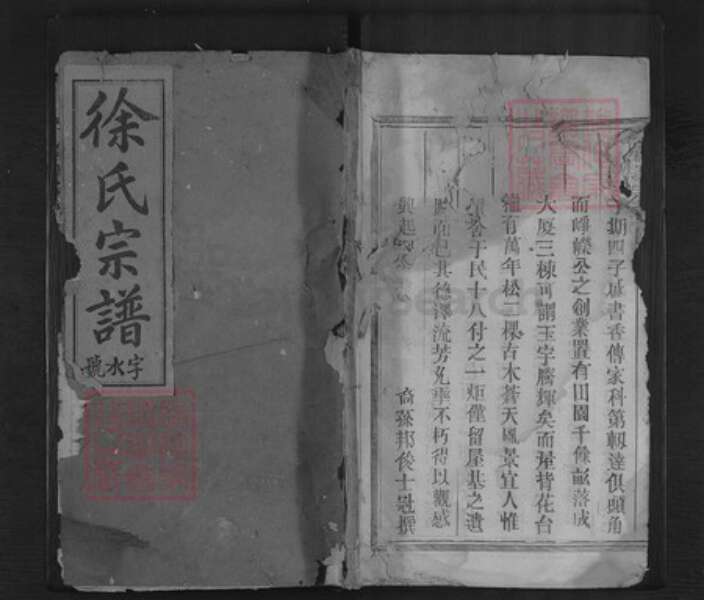 徐氏宗譜
字水號
期四子城書香傳家科第軔達俱頭角
而崢嶸公之創業置有田園千餘畝落成
大厦三棟可謂玉宇騰輝矣而屋背花台
有萬年松二棵古木蒼天風景宜人惟
于民十八付之一炬僅留屋基之遺
而已其德澤流芳不朽得以觀感
興起
裔孫邦俊士冠撰